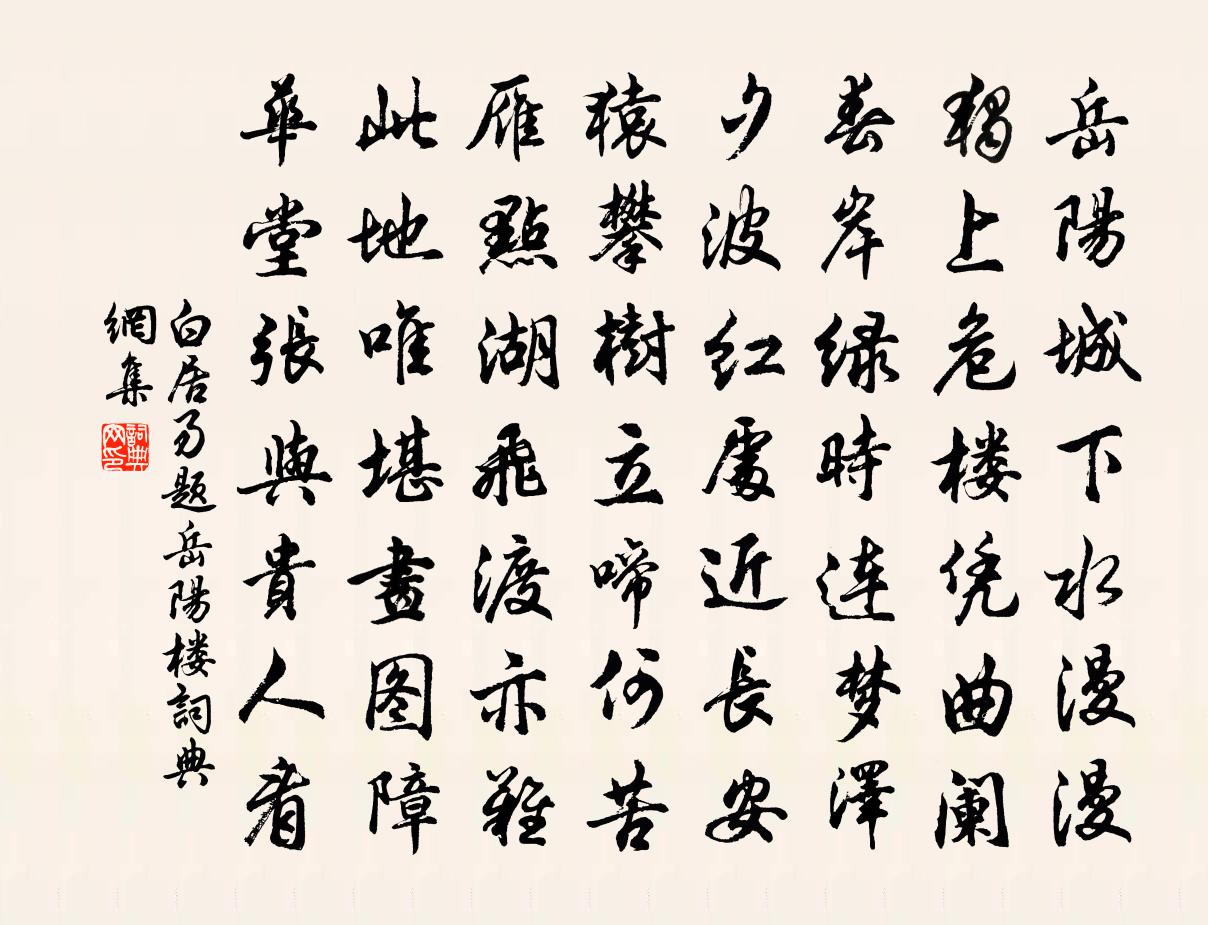 岳陽城下水漫漫
獨上危楼凭曲阑
春岸緑時連梦澤
夕波紅處近長安
猿攀樹立啼何苦
雁點湖飛渡亦難
此地唯堪畫图障
華堂張與貴人看
白居易题岳陽楼詞典
網集
詞典
网印